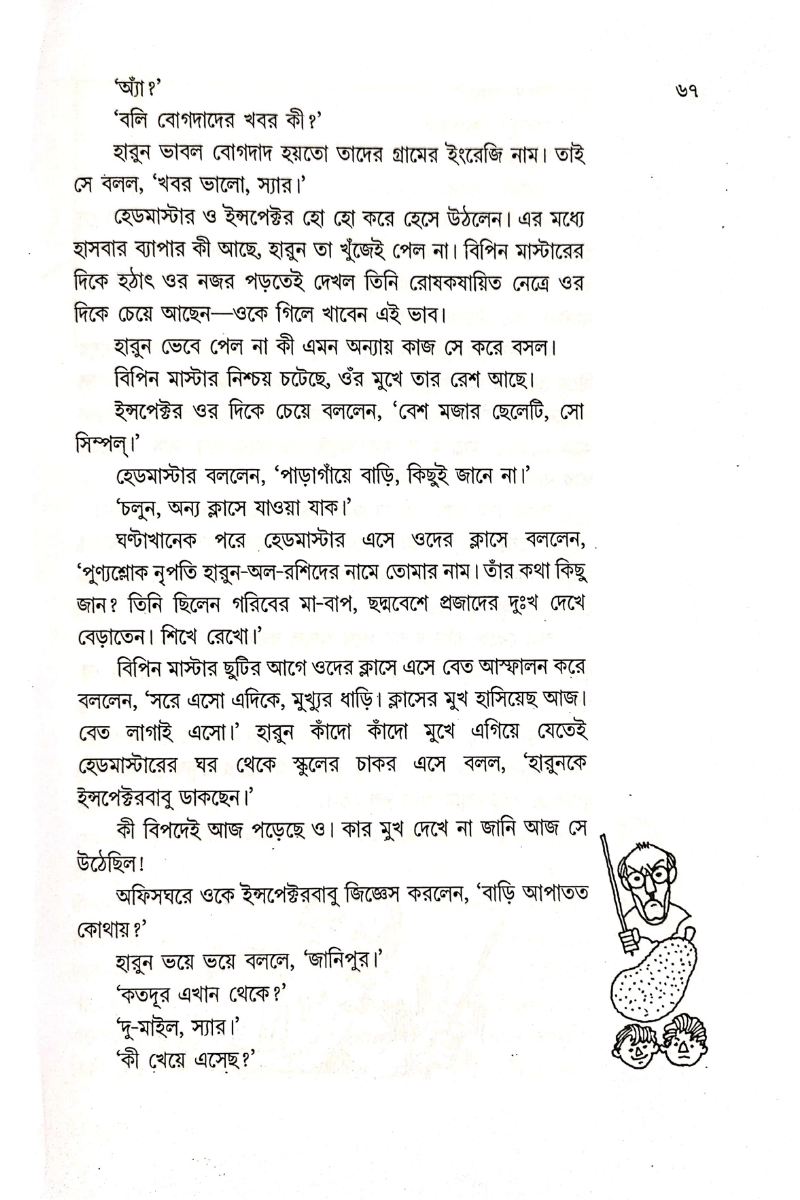 ‘অ্যাঁ?’
৬৭
‘বলি বোগদাদের খবর কী?’
হারুন ভাবল বোগদাদ হয়তো তাদের গ্রামের ইংরেজি নাম। তাই
সে বলল, ‘খবর ভালো, স্যার।’
হেডমাস্টার ও ইন্সপেক্টর হো হো করে হেসে উঠলেন। এর মধ্যে
হাসবার ব্যাপার কী আছে, হারুন তা খুঁজেই পেল না। বিপিন মাস্টারের
দিকে হঠাৎ ওর নজর পড়তেই দেখল তিনি রোষকষায়িত নেত্রে ওর
দিকে চেয়ে আছেন—ওকে গিলে খাবেন এই ভাব।
হারুন ভেবে পেল না কী এমন অন্যায় কাজ সে করে বসল।
বিপিন মাস্টার নিশ্চয় চটেছে, ওঁর মুখে তার রেশ আছে।
ইন্সপেক্টর ওর দিকে চেয়ে বললেন, ‘বেশ মজার ছেলেটি, সো
সিম্পল্‌।’
হেডমাস্টার বললেন, ‘পাড়াগাঁয়ে বাড়ি, কিছুই জানে না।’
‘চলুন, অন্য ক্লাসে যাওয়া যাক।’
ঘণ্টাখানেক পরে হেডমাস্টার এসে ওদের ক্লাসে বললেন,
‘পুণ্যশ্লোক নৃপতি হারুন-অল-রশিদের নামে তোমার নাম। তাঁর কথা কিছু
জান? তিনি ছিলেন গরিবের মা-বাপ, ছদ্মবেশে প্রজাদের দুঃখ দেখে
বেড়াতেন। শিখে রেখো।’
বিপিন মাস্টার ছুটির আগে ওদের ক্লাসে এসে বেত আস্ফালন করে
বললেন, ‘সরে এসো এদিকে, মুখ্যুর ধাড়ি। ক্লাসের মুখ হাসিয়েছ আজ।
বেত লাগাই এসো।’ হারুন কাঁদো কাঁদো মুখে এগিয়ে যেতেই
হেডমাস্টারের ঘর থেকে স্কুলের চাকর এসে বলল, ‘হারুনকে
ইন্সপেক্টরবাবু ডাকছেন।’
কী বিপদেই আজ পড়েছে ও। কার মুখ দেখে না জানি আজ সে
উঠেছিল!
অফিসঘরে ওকে ইন্সপেক্টরবাবু জিজ্ঞেস করলেন, ‘বাড়ি আপাতত
কোথায়?’
হারুন ভয়ে ভয়ে বললে, ‘জানিপুর।’
‘কতদূর এখান থেকে?’
‘দু-মাইল, স্যার।’
‘কী খেয়ে এসেছ?’